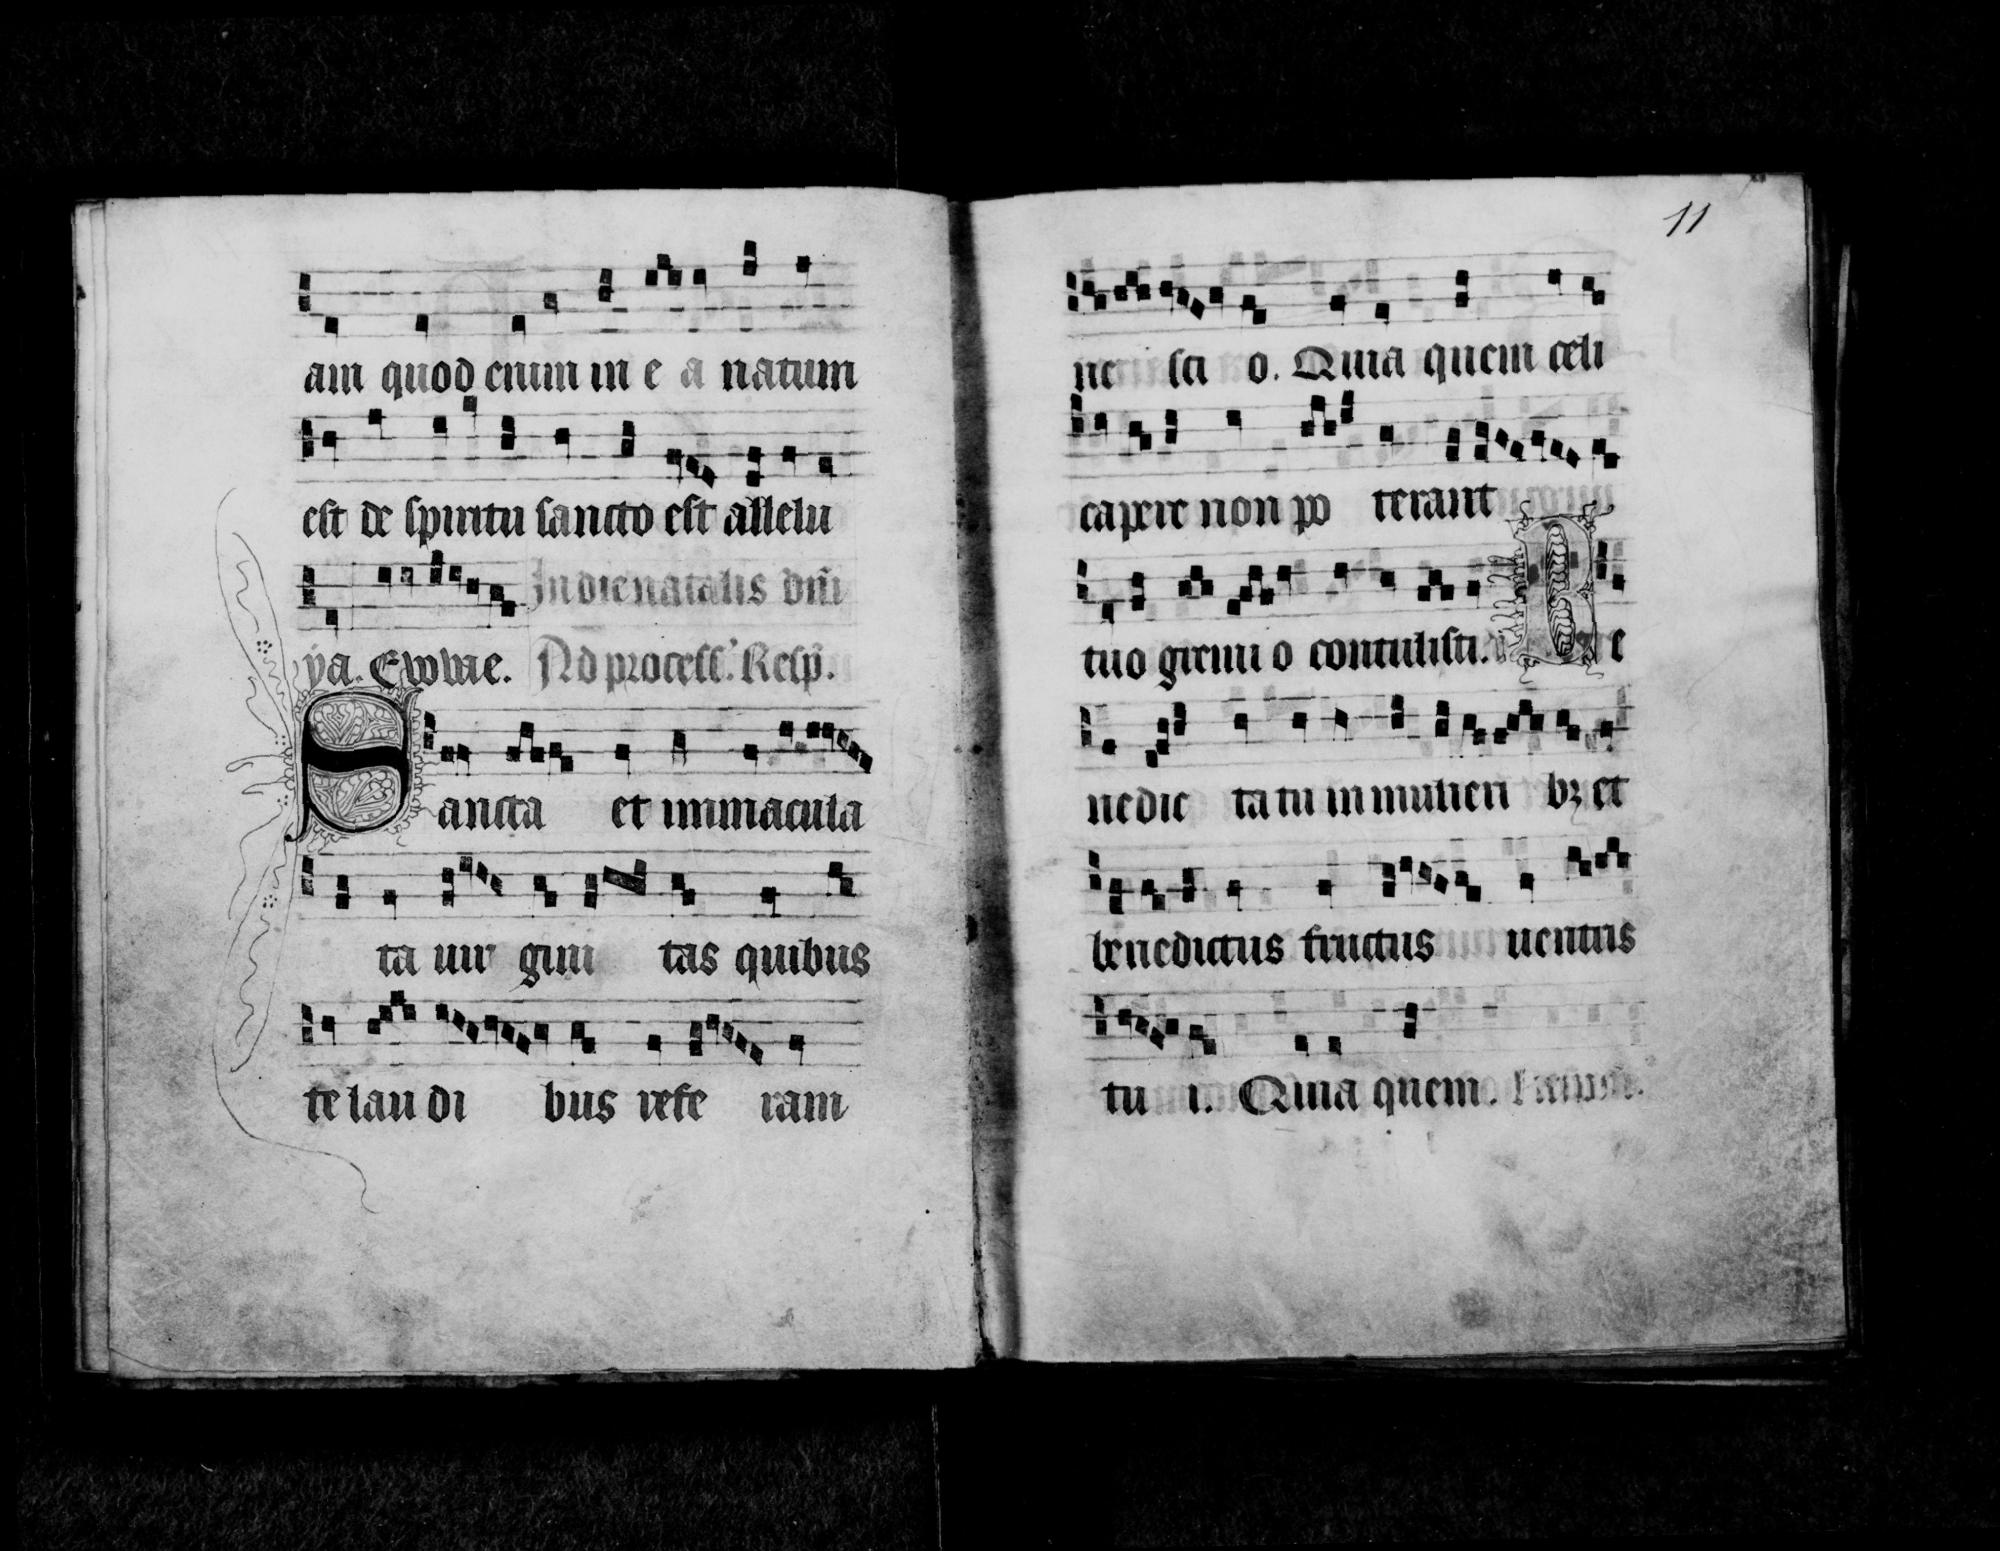 am quod enim in e a natum
est de spiritu sancto est allelu
In die natalis dñi
ya. Evovae. Ad process.' Resp̃.
Sancta et immacula
ta uir gini tas quibus
te lau di bus refe ram
11
ne sci o. Quia quem celi
capere non po terant
tuo gremi o contulisti. B e
nedic ta tu in mulieri bꝫ et
benedictus fructus uentris
tu i. Quia quem.